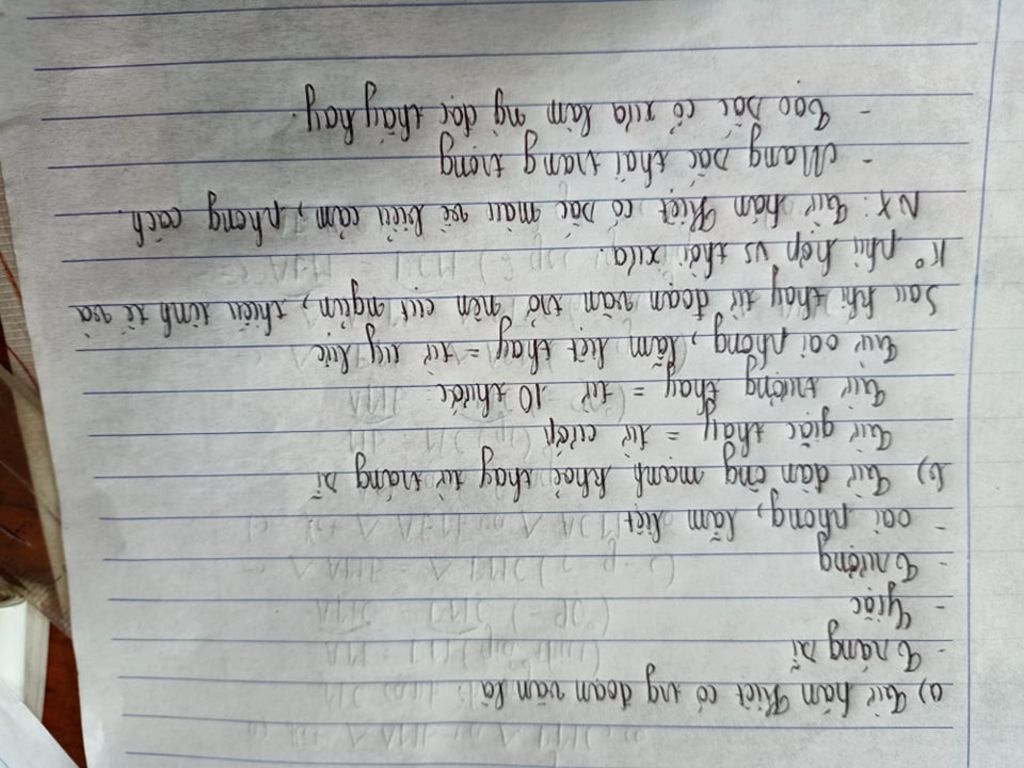 a) Từ hán Việt có trg đoạn văn là
- Tráng sĩ
- Giặc
- Trượng
- oai phong, lẫm liệt
b) Từ đàn ông mạnh khoẻ thay từ tráng sĩ
Từ giặc thay = từ cướp
Từ trượng thay = từ 10 thước
Từ oai phong, lẫm liệt thay = từ uy lực
Sau khi thay từ đoạn văn trở nên cụt ngủn, thiếu tinh tế và
K° phù hợp vs thời xưa.
NX: Từ hán Việt có sắc màu về biểu cảm, phong cách.
- Mang sắc thái trang trọng
- Tạo sắc cổ xưa làm ng đọc thấy hay.